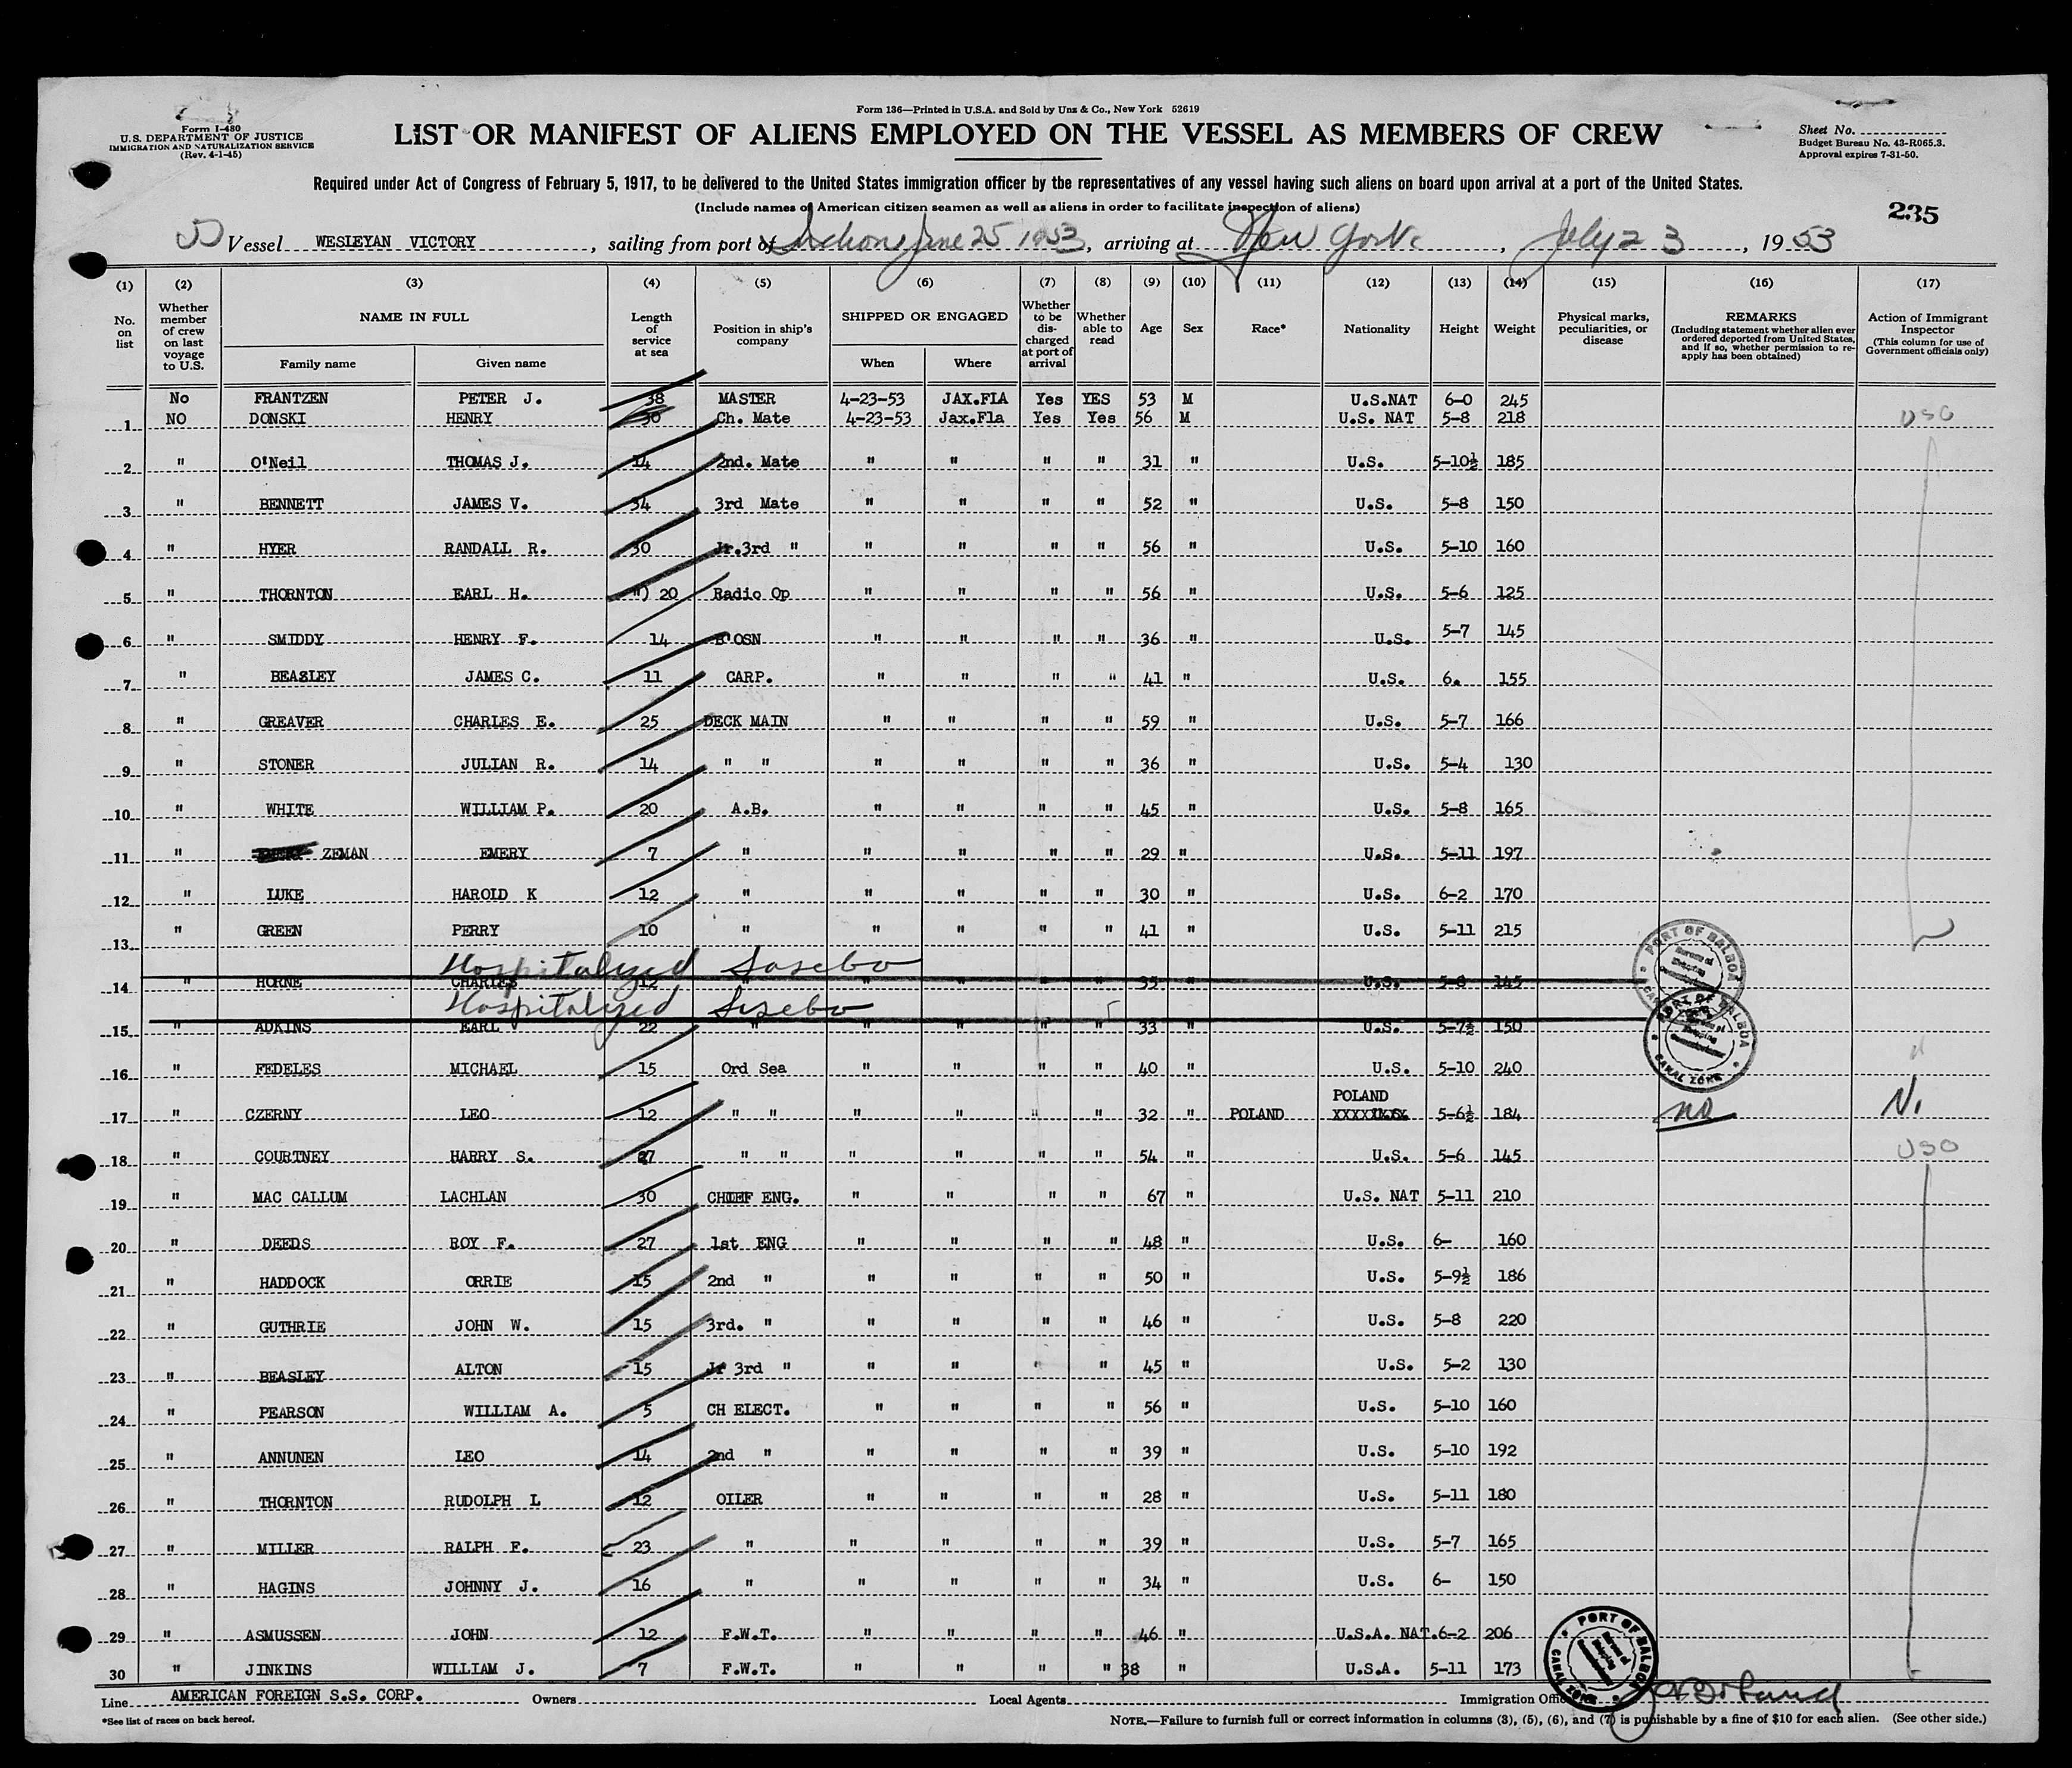 Form 136—Printed in U.S.A. and Sold by Unz & Co., New York 52619
Form I-480
U.S. DEPARTMENT OF JUSTICE
IMMIGRATION AND NATURALIZATION SERVICE
(Rev. 4-1-45)
LIST OR MANIFEST OF ALIENS EMPLOYED ON THE VESSEL AS MEMBERS OF CREW
Sheet No.
Budget Bureau No. 43-R065.3.
Approval expires 7-31-50.
Required under Act of Congress of February 5, 1917, to be delivered to the United States immigration officer by the representatives of any vessel having such aliens on board upon arrival at a port of the United States.
(Include names of American citizen seamen as well as aliens in order to facilitate inspection of aliens)
235
Vessel WESLEYAN VICTORY, sailing from port of Inchon June 25 1953, arriving at New York, July 23, 1953
(1) (2) (3) (4) (5) (6) (7) (8) (9) (10) (11) (12) (13) (14) (15) (16) (17)
No. on list
Whether member of crew on last voyage to U.S.
NAME IN FULL
Family name
Given name
Length of service at sea
Position in ship's company
SHIPPED OR ENGAGED
When
Where
Whether to be discharged at port of arrival
Whether able to read
Age
Sex
Race*
Nationality
Height
Weight
Physical marks, peculiarities, or disease
REMARKS
(Including statement whether alien ever ordered deported from United States, and if so, whether permission to re-apply has been obtained)
Action of Immigrant Inspector
(This column for use of Government officials only)
No FRANTZEN PETER J. 38 MASTER 4-23-53 JAX.FlA Yes YES 53 M U.S.NAT 6-0 245
1 NO DONSKI HENRY 30 Ch. Mate 4-23-53 Jax.Fla Yes Yes 56 M U.S. NAT 5-8 218 USC
2 " O'Neil THOMAS J. 14 2nd. Mate " " " " 31 " U.S. 5-10½ 185
3 " BENNETT JAMES V. 34 3rd Mate " " " " 52 " U.S. 5-8 150
4 " HYER RANDALL R. 30 Jr.3rd " " " " " 56 " U.S. 5-10 160
5 " THORNTON EARL H. ") 20 Radio Op " " " " 56 " U.S. 5-6 125
6 " SMIDDY HENRY F. 14 B'OSN " " " " 36 " U.S. 5-7 145
7 " BEASLEY JAMES C. 11 CARP. " " " " 41 " U.S. 6. 155
8 " GREAVER CHARLES E. 25 DECK MAIN " " " " 59 " U.S. 5-7 166
9 " STONER JULIAN R. 14 " " " " " " 36 " U.S. 5-4 130
10 " WHITE WILLIAM P. 20 A.B. " " " " 45 " U.S. 5-8 165
11 " ZEMAN EMERY 7 " " " " " 29 " U.S. 5-11 197
12 " LUKE HAROLD K 12 " " " " " 30 " U.S. 6-2 170
13 " GREEN PERRY 10 " " " " " 41 " U.S. 5-11 215
Hospitalized Sasebo
14 " HORNE CHARLES 12 " " " " " 35 " U.S. 5-8 145
Hospitalized Sasebo
15 " ADKINS EARL V 22 " " " " " 33 " U.S. 5-7½ 150
16 " FEDELES MICHAEL 15 Ord Sea " " " " 40 " U.S. 5-10 240 "
POLAND
17 " CZERNY LEO 12 " " " " " " 32 " POLAND 5-6½ 184 no N.
18 " COURTNEY HARRY S. 27 " " " " " " 54 " U.S. 5-6 145 USC
19 " MAC CALLUM LACHLAN 30 CHIEF ENG. " " " " 67 " U.S. NAT 5-11 210
20 " DEEDS ROY F. 27 1st ENG " " " " 48 " U.S. 6- 160
21 " HADDOCK ORRIE 15 2nd " " " " " 50 " U.S. 5-9½ 186
22 " GUTHRIE JOHN W. 15 3rd. " " " " " 46 " U.S. 5-8 220
23 " BEASLEY ALTON 15 Jr 3rd " " " " " 45 " U.S. 5-2 130
24 " PEARSON WILLIAM A. 5 CH ELECT. " " " " 56 " U.S. 5-10 160
25 " ANNUNEN LEO 14 2nd " " " " " 39 " U.S. 5-10 192
26 " THORNTON RUDOLPH L 12 OILER " " " " 28 " U.S. 5-11 180
27 " MILLER RALPH F. 23 " " " " " 39 " U.S. 5-7 165
28 " HAGINS JOHNNY J. 16 " " " " " 34 " U.S. 6- 150
29 " ASMUSSEN JOHN 12 F.W.T. " " " " 46 " U.S.A. NAT. 6-2 206
30 " JINKINS WILLIAM J. 7 F.W.T. " " " " 38 " U.S.A. 5-11 173
PORT OF BALBOA CANAL ZONE
PORT OF BALBOA CANAL ZONE
PORT OF BALBOA CANAL ZONE
Line AMERICAN FOREIGN S.S. CORP. Owners Local Agents Immigration Offic
*See list of races on back hereof.
NOTE.—Failure to furnish full or correct information in columns (3), (5), (6), and (7) is punishable by a fine of $10 for each alien. (See other side.)